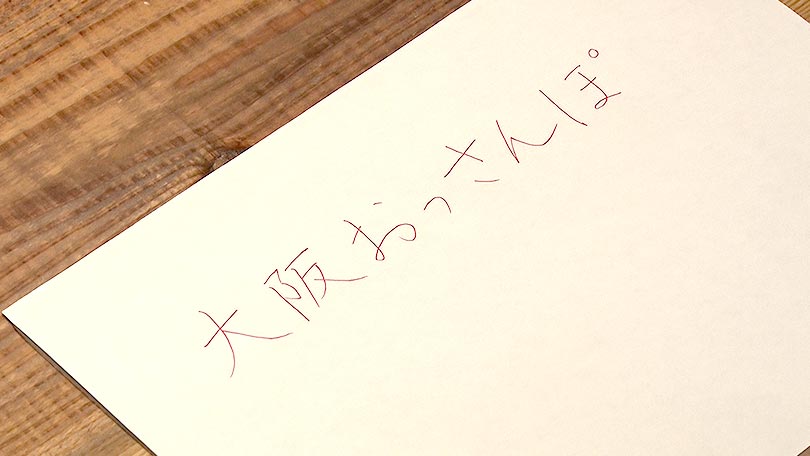 大阪おっさんぽ